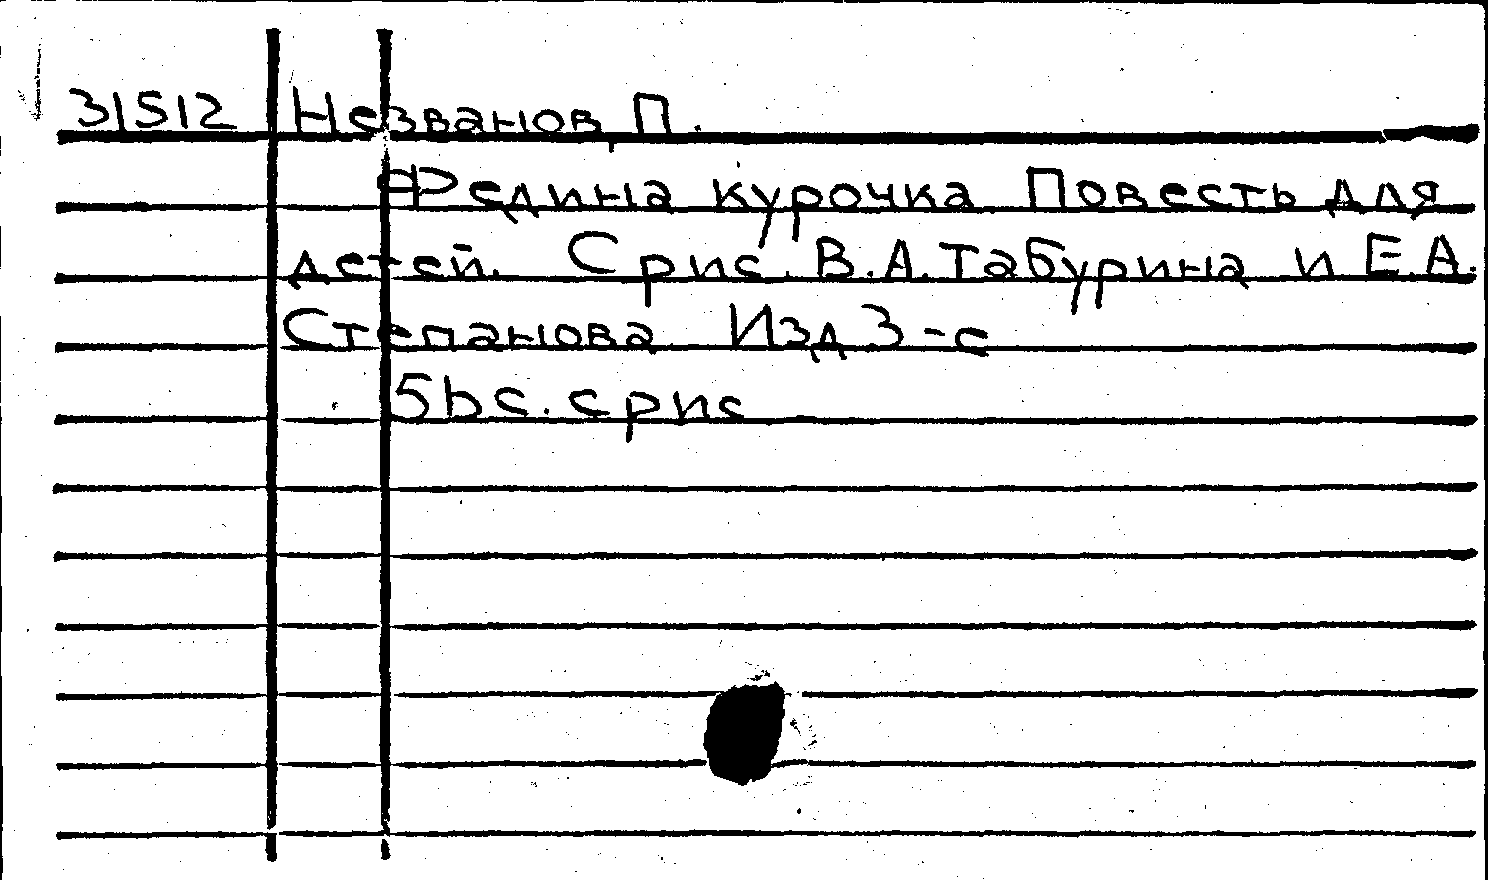 31512 Незванов, П.
Федина курочка Повесть для
детей. С рис. В.А.Табурина и Е.А.
Степанова Изд 3-е
56 с. с рис